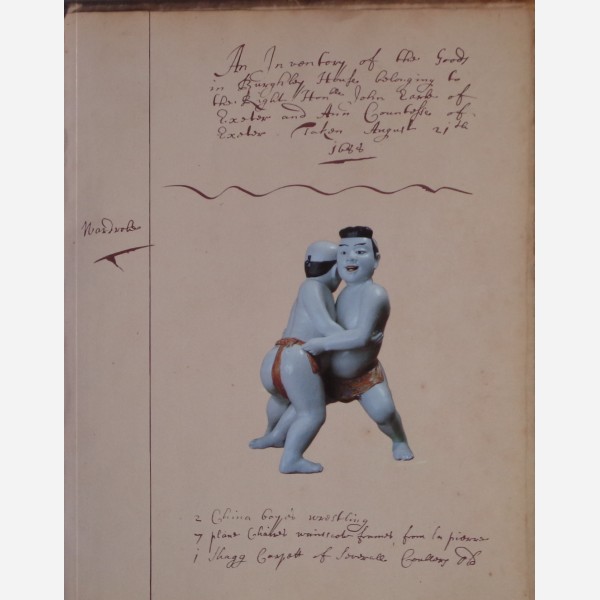 An Inventory of the Goods
in Burghley House belonging to
the Right Honble John Earle of
Exeter and Ann Countesse of
Exeter Taken August 21th
1688
Wardrobe
2 China boyes wrestling
7 plane Chaires wainscote frames from la pierre
1 Shagg Carpett of Severall Coullers